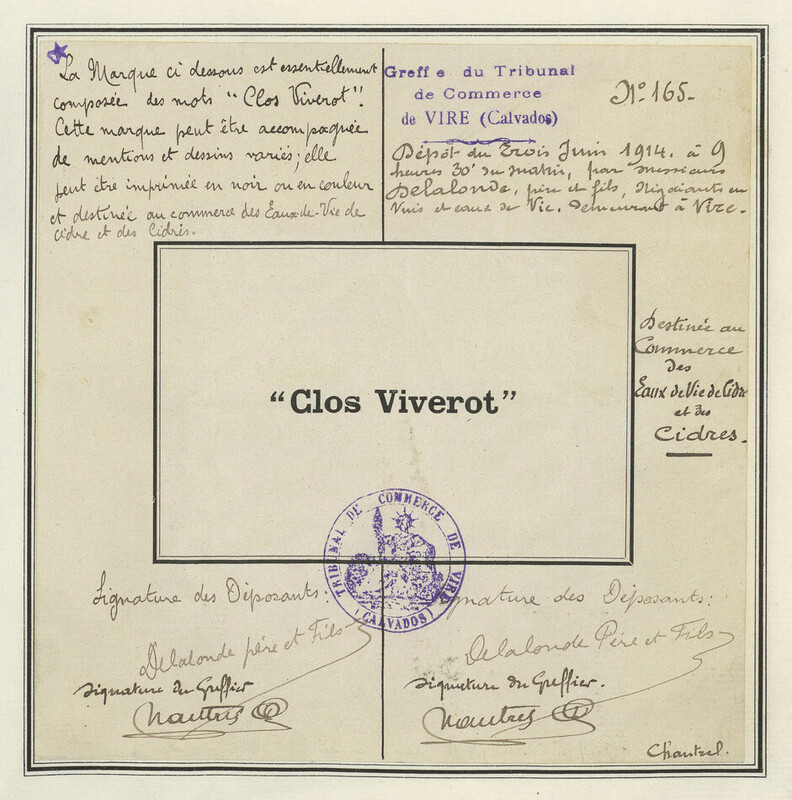 La Marque ci dessous est essentiellement
composée des mots "Clos Viverot".
Cette marque peut être accompagnée
de mentions et dessins variés; elle
peut être imprimée en noir ou en couleur
et destinée au commerce des Eaux-de-Vie de
cidre et des Cidres.
Greffe du Tribunal
de Commerce
de VIRE (Calvados)
N° 165-
Dépôt du Trois Juin 1914. à 9
heures 30' du matin, par messieurs
Delalonde, père et fils, Négociants en
Vins et eaux de Vie. demeurant à Vire.
"Clos Viverot"
Destinée au
Commerce
des
Eaux de Vie de Cidre
et des
Cidres.
TRIBUNAL DE COMMERCE DE VIRE
(CALVADOS)
Signature des Déposants:
Delalonde père et Fils
Signature du Greffier
Nautres
Signature des Déposants:
Delalonde Père et Fils
Signature du Greffier.
Nautres
Chantrel.